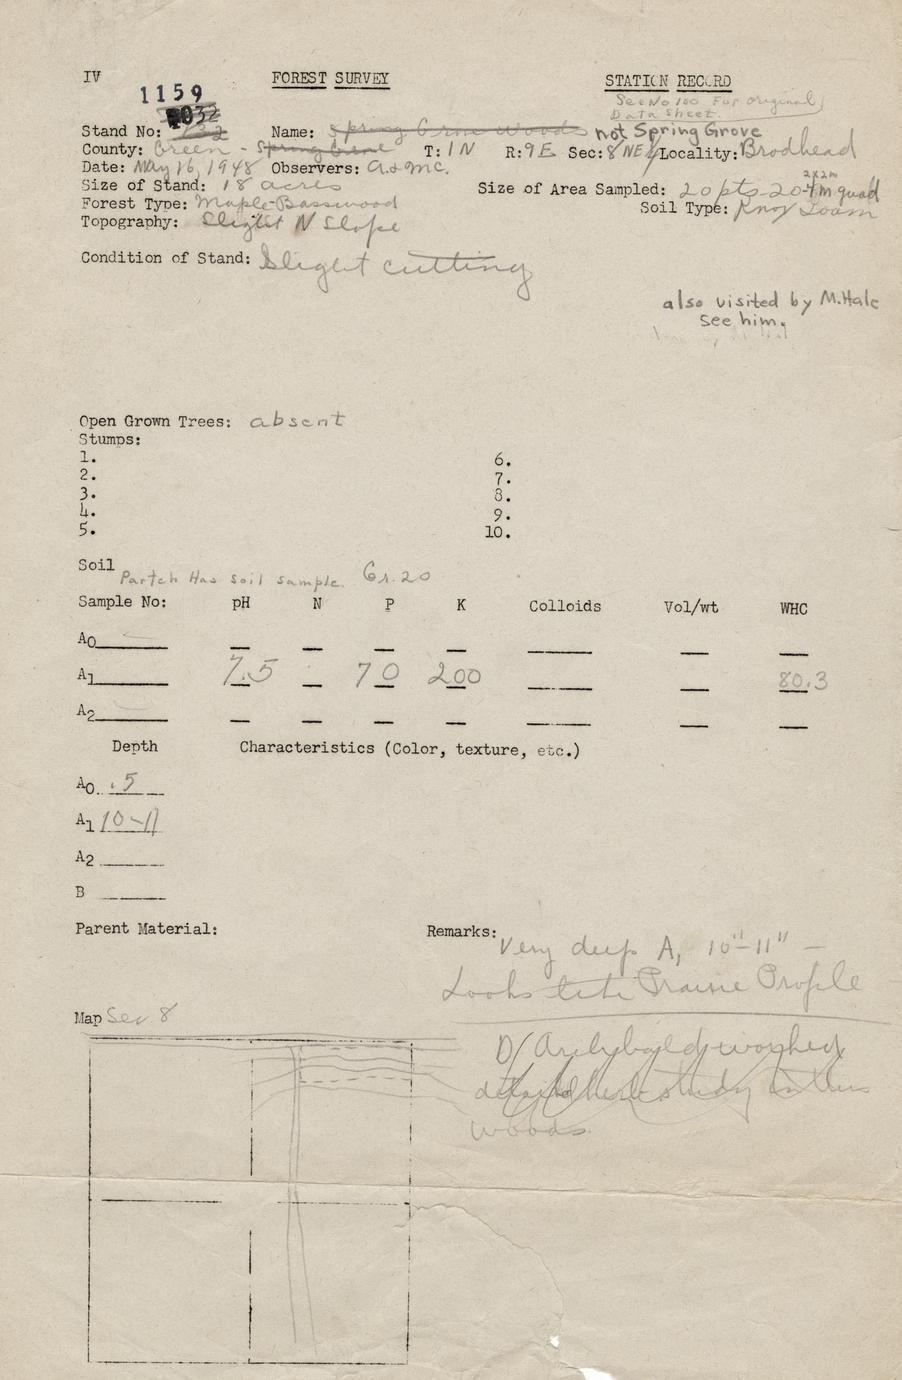 IV FOREST SURVEY STATION RECORD
1159 See No 100 For original
Data Sheet.
Stand No: Name: Spring Grove Woods not Spring Grove
County: Green - Spring Grove T: 1N R: 9E Sec: 8 NE¼ Locality: Brodhead
Date: May 16, 1948 Observers: A. & Mc. 2x2m
Size of Stand: 18 acres Size of Area Sampled: 20 pts - 20 - 4m quad
Forest Type: Maple-Basswood Soil Type: Knox Loam
Topography: Slight N Slope
Condition of Stand: Slight cutting
also visited by M. Hale
see him.
Open Grown Trees: absent
Stumps:
1. 6.
2. 7.
3. 8.
4. 9.
5. 10.
Soil Partch Has soil sample. Gr. 20
Sample No: pH N P K Colloids Vol/wt WHC
A0
A1 7.5 70 200 80.3
A2
Depth Characteristics (Color, texture, etc.)
A0 .5
A1 10-11
A2
B
Parent Material: Remarks: Very deep A1 10"-11" -
Looks like Prairie Profile
Map Sec 8
detailed herb study in this
woods.